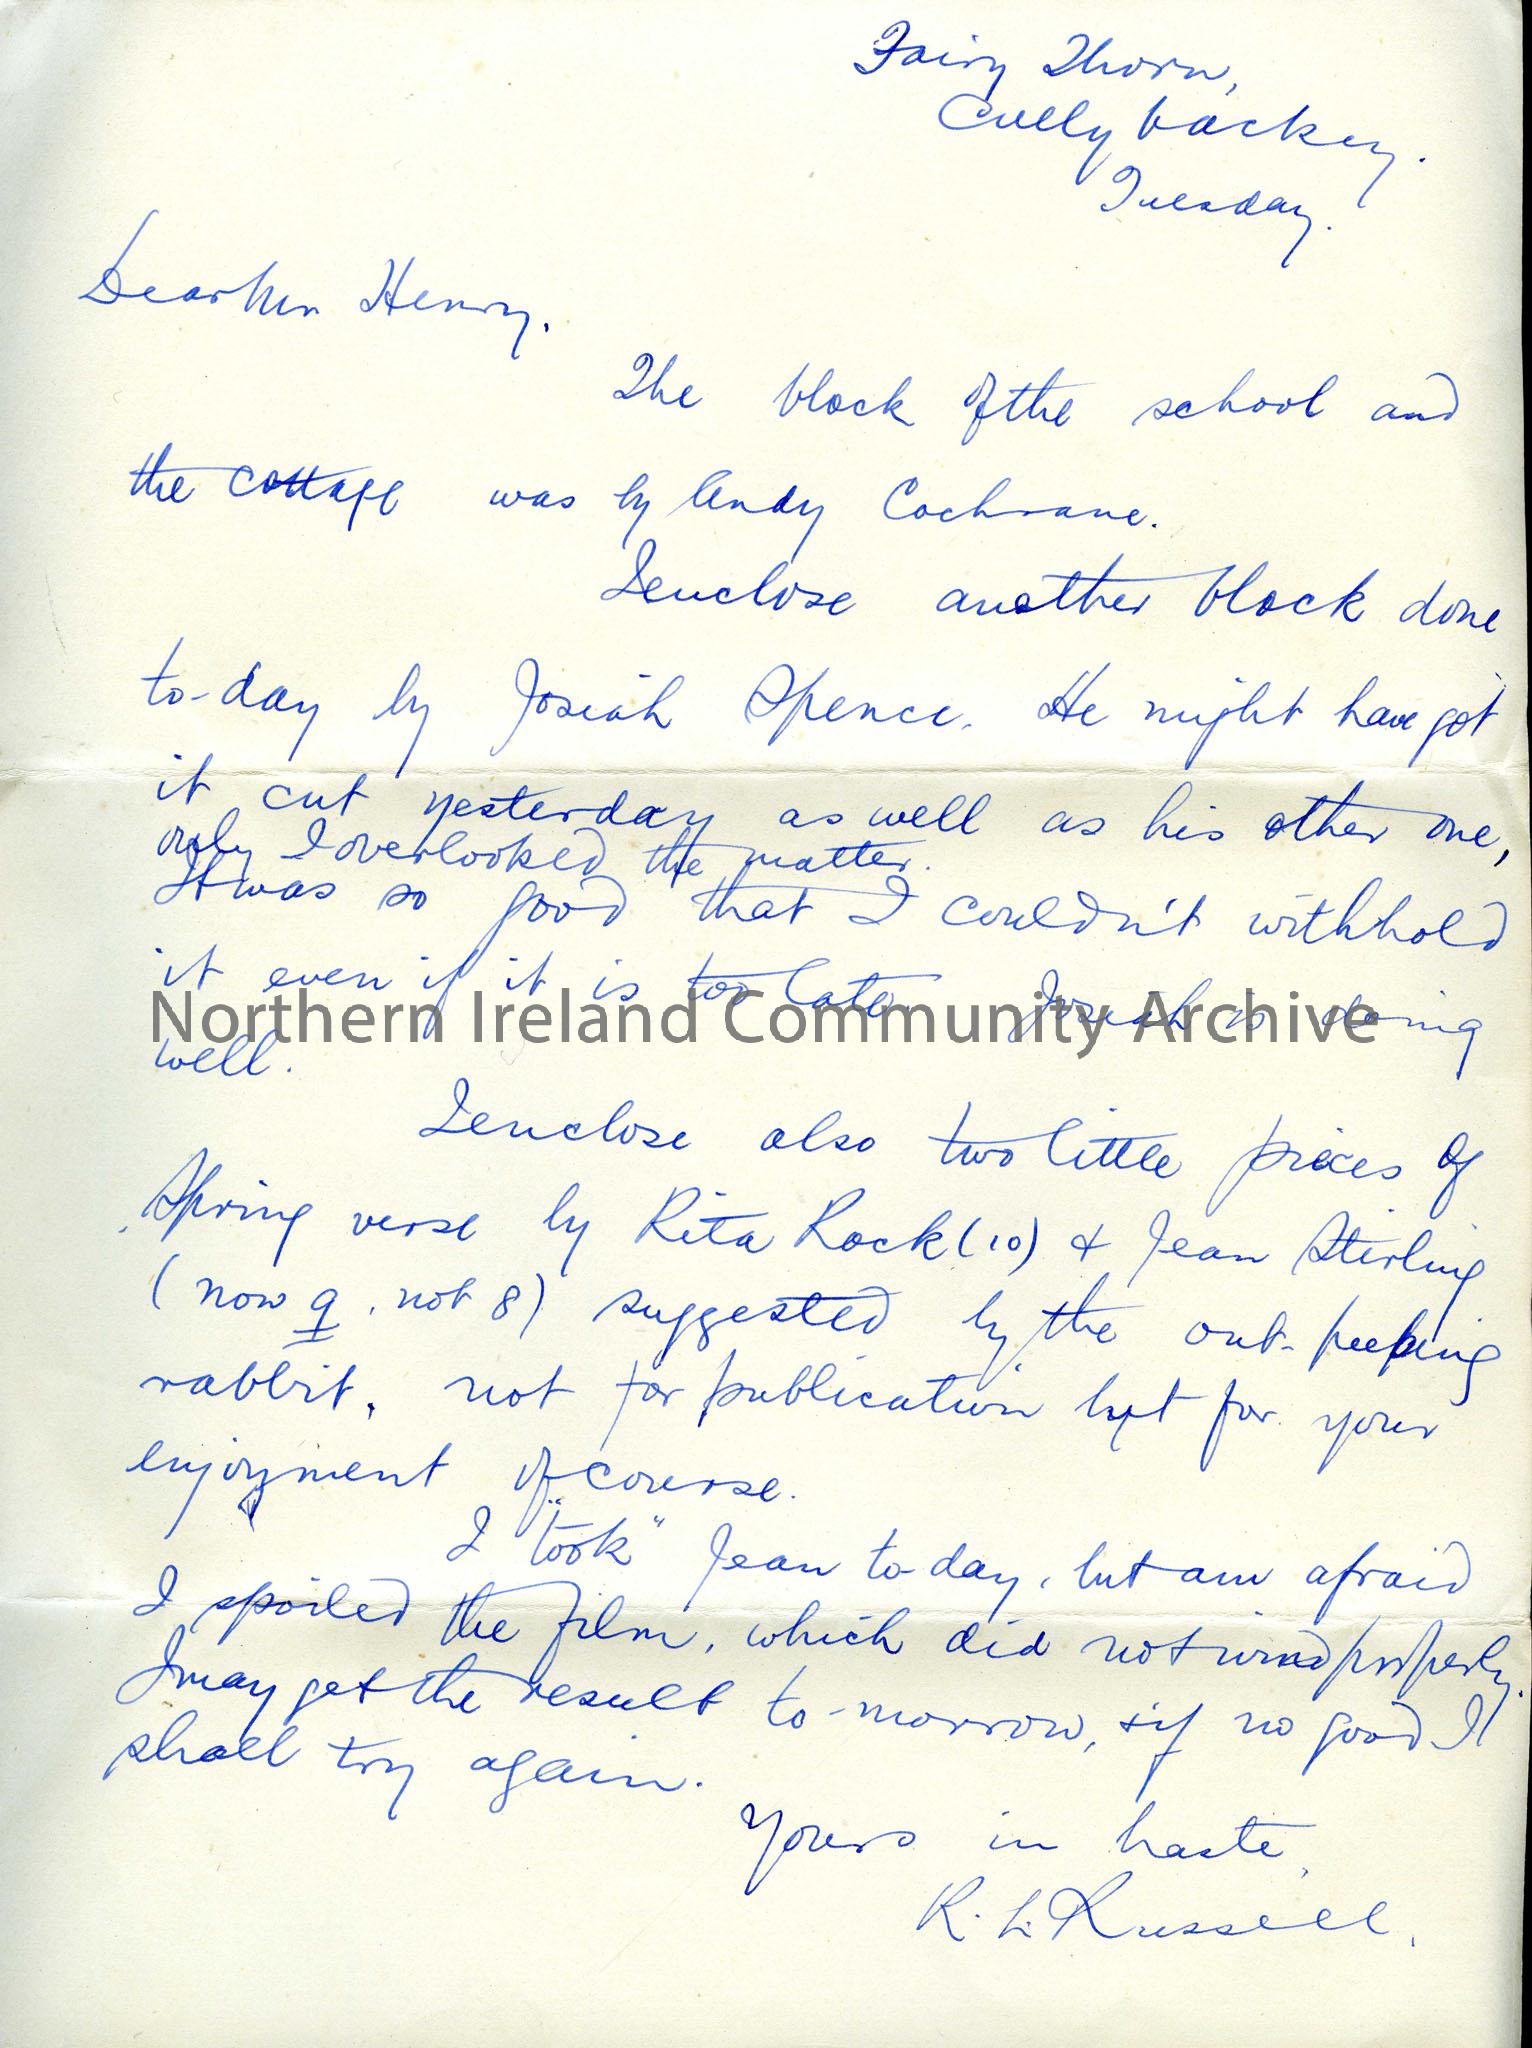 Fairy Thorn,
Cullybackey.
Tuesday.
Dear Mr Henry,
The block of the school and
the cottage was by Andy Cochrane.
I enclose another block done
to-day by Josiah Spence. He might have got
it cut yesterday as well as his other one,
only I overlooked the matter.
It was so good that I couldn't withhold
it even if it is too late. Josiah is doing
well.
Northern Ireland Community Archive
I enclose also two little pieces of
Spring verse by Rita Rock (10) & Jean Stirling
(now 9, not 8) suggested by the out-peeping
rabbit, not for publication but for your
enjoyment of course.
I "took" Jean to-day, but am afraid
I spoiled the film, which did not wind properly.
I may get the result to-morrow, & if no good I
shall try again.
Yours in haste,
R. L. Russell.